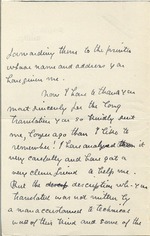 forwarding them to the printer
whose name and address you
have given me.
Now I have to thank you
most sincerely for the long
translation you so kindly sent
me, longer ago than I like to
remember! I have analysed it
very carefully and have got a
very clever friend to help me.
But the description wh. you
translated was not written by
a man accustomed to technical
work of this kind and some of the